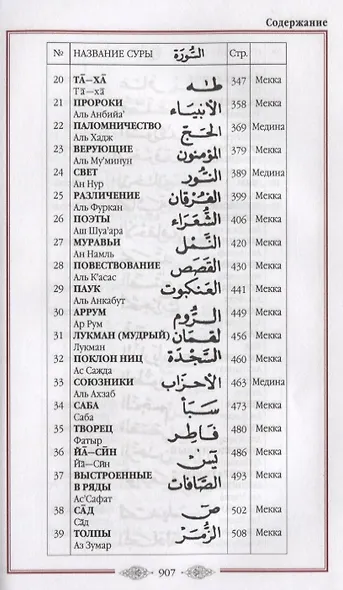 Содержание
№ НАЗВАНИЕ СУРЫ السُّورَة Стр.
20 ТА̄–ХА̄ طه 347 Мекка
Та̄–ха̄
21 ПРОРОКИ الأنبياء 358 Мекка
Аль Анбийа'
22 ПАЛОМНИЧЕСТВО الحج 369 Медина
Аль Хадж
23 ВЕРУЮЩИЕ المؤمنون 379 Мекка
Аль Му'минун
24 СВЕТ النُّور 389 Медина
Ан Нур
25 РАЗЛИЧЕНИЕ الفُرقان 399 Мекка
Аль Фуркан
26 ПОЭТЫ الشُّعَرَاء 406 Мекка
Аш Шуа'ара
27 МУРАВЬИ النَّمل 420 Мекка
Ан Намль
28 ПОВЕСТВОВАНИЕ القَصَص 430 Мекка
Аль К'асас
29 ПАУК العَنكبوت 441 Мекка
Аль Анкабут
30 АРРУМ الرُّوم 449 Мекка
Ар Рум
31 ЛУКМАН (МУДРЫЙ) لقمَان 456 Мекка
Лукман
32 ПОКЛОН НИЦ السَّجْدَة 460 Мекка
Ас Сажда
33 СОЮЗНИКИ الأحزاب 463 Медина
Аль Ахзаб
34 САБА سَبَأ 473 Мекка
Саба
35 ТВОРЕЦ فَاطِر 480 Мекка
Фатыр
36 ЙА̄–СӢН يس 486 Мекка
Йа̄–Сӣн
37 ВЫСТРОЕННЫЕ الصَّافات 493 Мекка
В РЯДЫ
Ас'Сафат
38 СА̄Д ص 502 Мекка
Са̄д
39 ТОЛПЫ الزُّمَر 508 Мекка
Аз Зумар
907